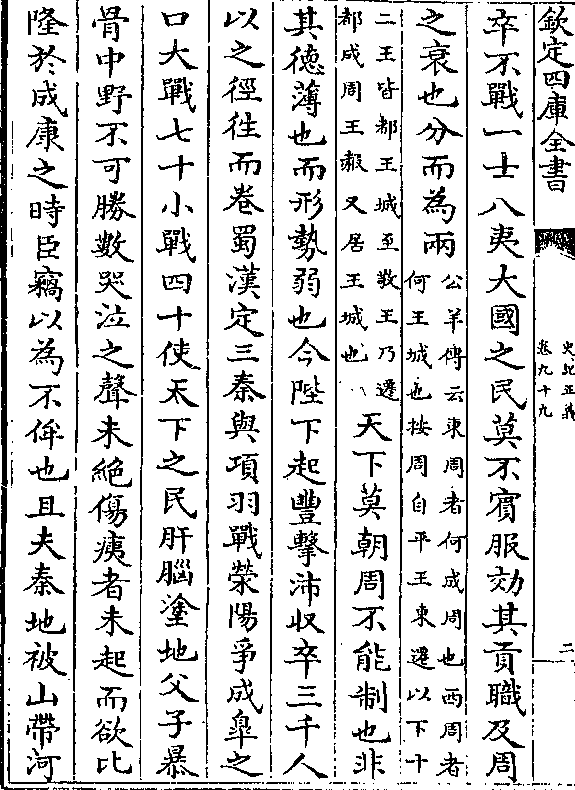 欽定四庫全書
史記正義
卷九十九
二
卒不戰一士八夷大國之民莫不賓服効其貢職及周
之衰也分而為兩公羊傳云東周者何成周也西周者何王城也按周自平王東遷以下十
二王皆都王城至敬王乃遷都成周王赧又居王城也天下莫朝周不能制也非
其德薄也而形勢弱也今陛下起豐擊沛收卒三千人
以之徑徃而卷蜀漢定三秦與項羽戰滎陽爭成臯之
口大戰七十小戰四十使天下之民肝腦塗地父子暴
骨中野不可勝數哭泣之聲未絶傷痍者未起而欲比
隆於成康之時臣竊以為不侔也且夫秦地被山帶河